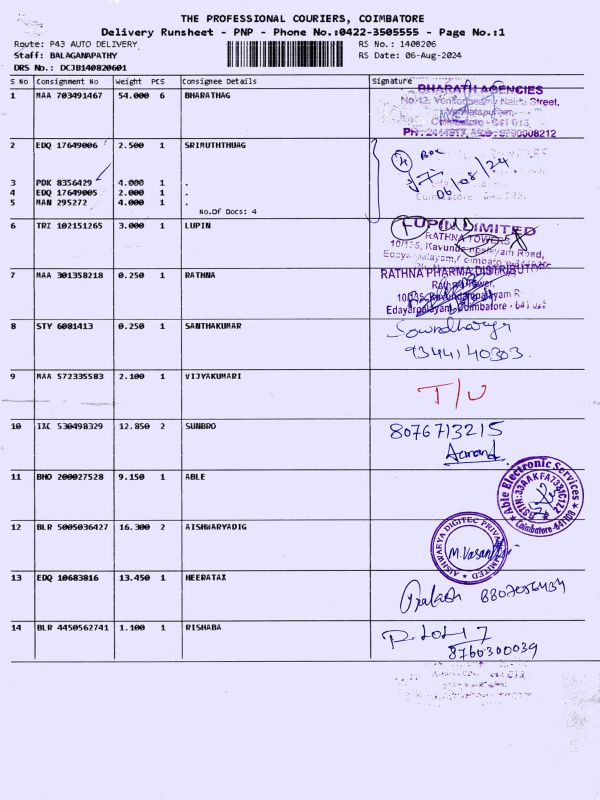 THE PROFESSIONAL COURIERS, COIMBATORE
Delivery Runsheet - PNP - Phone No.:0422-3505555 - Page No.:1
Route: P43 AUTO DELIVERY RS No.: 1408206
Staff: BALAGANAPATHY RS Date: 06-Aug-2024
DRS No.: DCJB140820601
S No Consignment No Weight PCS Consignee Details Signature
1 MAA 703491467 54.000 6 BHARATHAG
BHARATH AGENCIES
2 EDQ 17649006 2.500 1 SRIMUTHTHUAG
4 BOX
06/08/24
3 PDK 8356429 4.000 1 .
4 EDQ 17649005 2.000 1 .
5 MAN 295272 4.000 1 .
No.Of Docs: 4
6 TRZ 102151265 3.000 1 LUPIN
LUPIN LIMITED
RATHNA TOWERS
7 MAA 301358218 0.250 1 RATHNA
RATHNA PHARMA DISTRIBUTOR
Rathna Tower,
8 STY 6081413 0.250 1 SANTHAKUMAR
9344140303.
9 MAA 572335583 2.100 1 VIJYAKUMARI
T/U
10 IXC 530498329 12.850 2 SUNBRO
8076713215
Aanand
11 BHO 200027528 9.150 1 ABLE
Able Electronic Services
Coimbatore-641103
12 BLR 5005036427 16.300 2 AISHWARYADIG
AISHWARYA DIGITEC PRIVATE LIMITED
13 EDQ 10683816 13.450 1 HEERATAX
Prakash
14 BLR 4450562741 1.100 1 RISHABA
8760300039